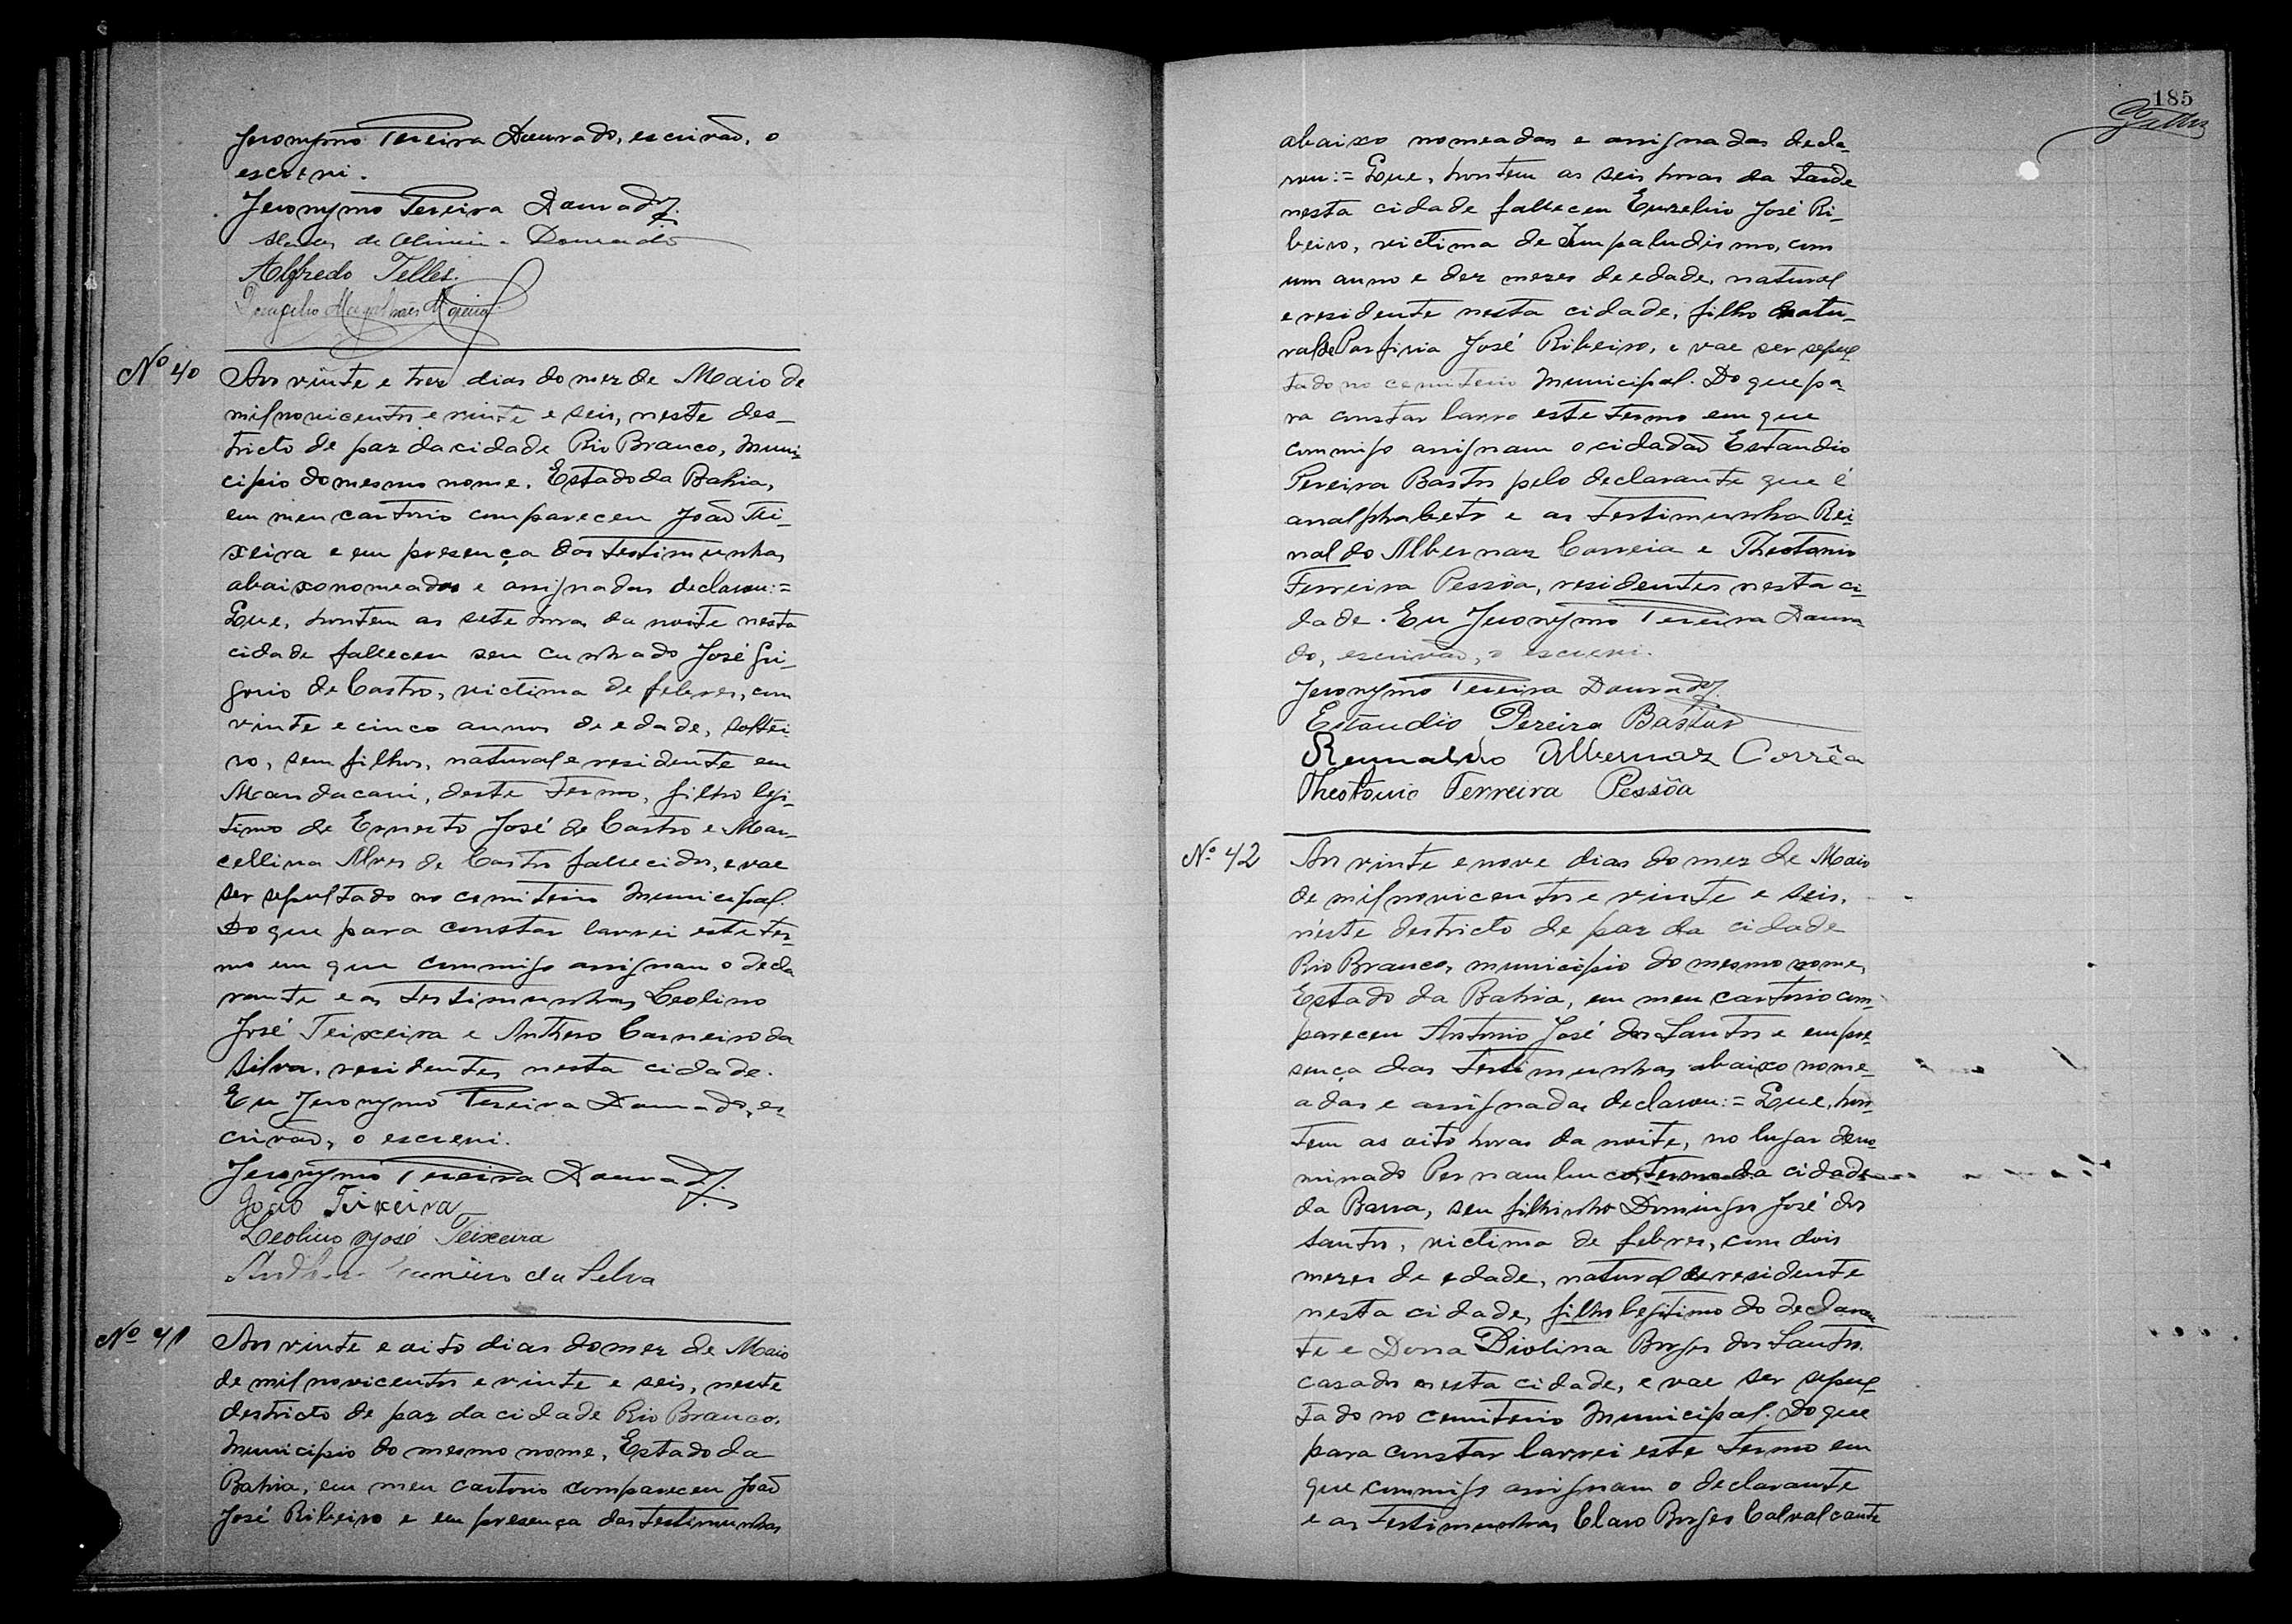 Jeronymo Pereira Dourado, escrivão, o
escrevi.
Jeronymo Pereira Dourado
de Oliveira Dourado
Alfredo Telles.
Magalhães Moreira
Nº 40
Aos vinte e trez dias do mez de Maio de
mil novicentos e vinte e seis, neste des-
tricto de paz da cidade Rio Branco, Muni-
cipio do mesmo nome, Estado da Bahia,
em meu cartorio compareceu João Tei-
xeira e em presença das testimunhas
abaixo nomeadas e assignadas declarou:=
Que, hontem as sete horas da noite nesta
cidade falleceu seu cunhado José Gri-
gorio de Castro, victima de febres, com
vinte e cinco annos de edade, soltei-
ro, sem filhos, natural e residente em
Mandacarú, deste Termo, filho legi-
timo de Ernesto José de Castro e Mar-
cellina Alves de Castro fallecidos, e vae
ser sepultado no cemiterio Municipal.
Do que para constar lavrei este ter-
mo em que commigo assignam o decla
rante e as testimunhas Leolino
José Teixeira e Anthero Carneiro da
Silva, residentes nesta cidade.
Eu Jeronymo Pereira Dourado, es-
crivão, o escrevi.
Jeronymo Pereira Dourado
João Teixeira
Leolino José Teixeira
Carneiro da Selva
Nº 41
Aos vinte e oito dias do mez de Maio
de mil novicentos e vinte e seis, neste
destricto de paz da cidade Rio Branco,
Municipio do mesmo nome, Estado da
Bahia, em meu cartorio compareceu João
José Ribeiro e em presença das testimunhas
185
Telles
abaixo nomeadas e assignadas decla-
rou:= Que, hontem as seis horas da tarde
nesta cidade falleceu Euzelino José Ri-
beiro, victima de Impaludismo, com
um anno e dez mezes de edade, natural
e residente nesta cidade, filho natu-
ral de Porfiria José Ribeiro, e vae ser sepul-
tado no cemiterio Municipal. Do que pa-
ra constar lavro este termo em que
commigo assignam o cidadão Estaudio
Pereira Bastos pelo declarante que é
analphabeto e as testimunha Rei-
naldo Albernaz Correia e Theotonio
Ferreira Pessôa, residentes nesta ci-
dade. Eu Jeronymo Pereira Doura
do, escrivão, o escrevi.
Jeronymo Pereira Dourado
Estaudio Pereira Bastos
Reunaldo Albernaz Corrêa
Theotonio Ferreira Pessôa
Nº 42
Aos vinte e nove dias do mez de Maio
de mil novicentos e vinte e seis,
néste destricto de paz da cidade
Rio Branco, municipio do mesmo nome,
Estado da Bahia, em meu cartorio com-
pareceu Antonio José dos Santos e em pre-
sença das testimunhas abaixo nome-
adas e assignadas declarou:= Que, hon-
tem as oito horas da noite, no lugar deno
minado Pernambuco, Termo da cidade
da Barra, seu filhinho Domingos José dos
Santos, victima de febres, com dois
mezes de edade, natural e residente
nesta cidade, filho legitimo do declaran
te e Dona Diolina Borges dos Santos.
casados nesta cidade, e vae ser sepul-
tado no cemiterio Municipal. Do que
para constar lavrei este termo em
que commigo assignam o declarante
e as testimunhas Claro Borges Calvalcante